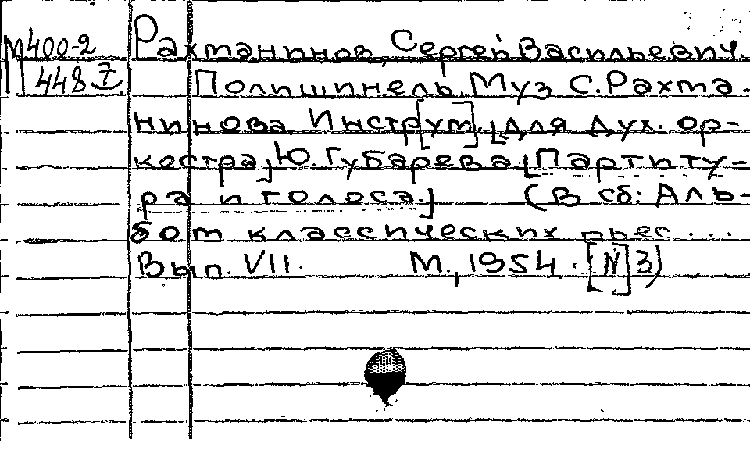 М400-2
448 I
Рахманинов, Сергей Васильевич.
Полишинель. Муз С. Рахма-
нинова Инстр[ум]. [для дух. ор-
кестра] Ю. Губарева [Партиту-
ра и голоса.] (В сб: Аль-
бом классических пьес...
Вып. VII. М., 1954. [N 3)